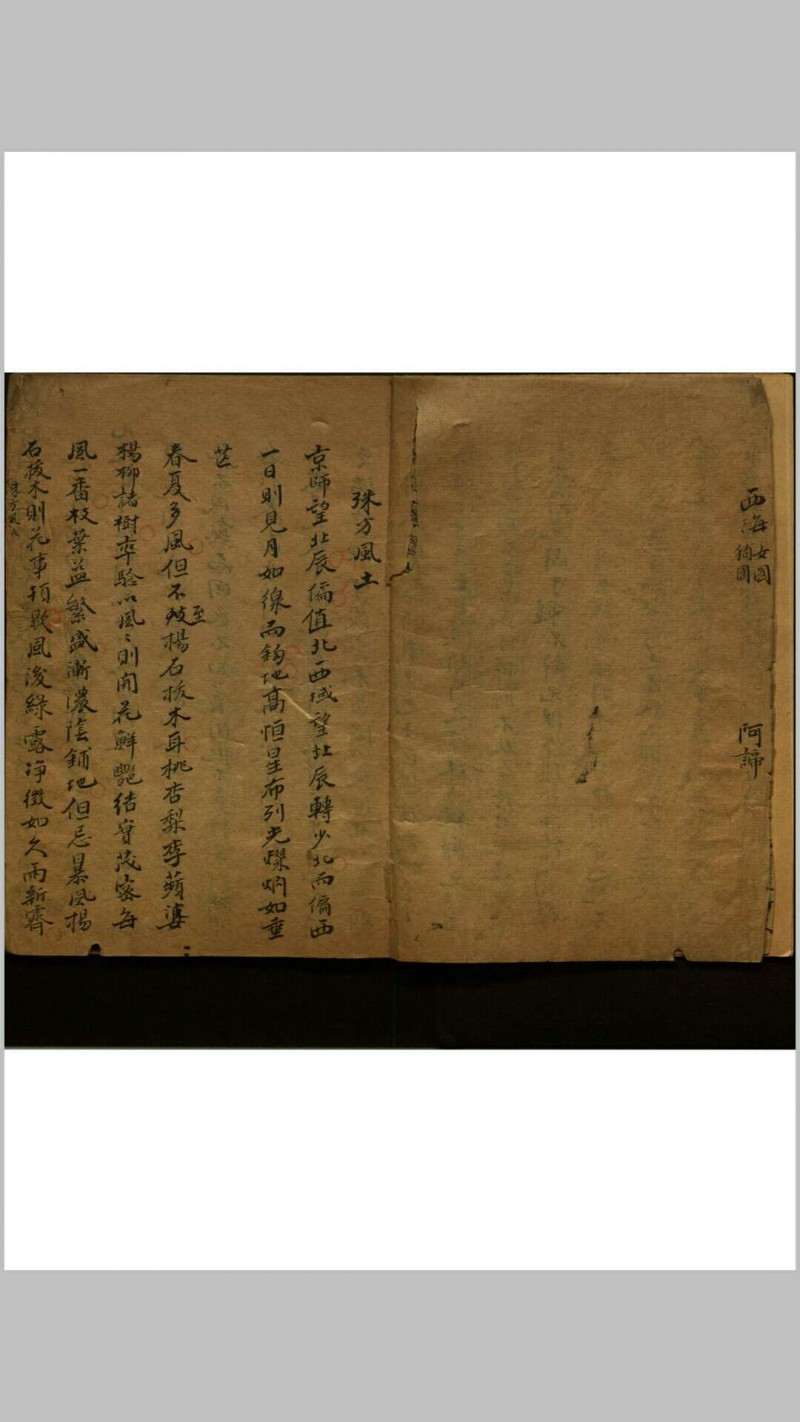 西海 女國 狗國 阿諦
殊方風土
京師望北辰偏值北西域望北辰轉少北而偏西
一日則見月如線而鈎地高恒星布列光爍炯如垂
芒
春夏多風但不致至揚石拔木耳桃杏梨李蘋婆
楊柳諸樹率驗以風〻則開花鮮艷結實茂密每
風一番枝葉益繁盛漸濃陰鋪地但忌暴風揚
石拔木則花事頓歇風後綠露淨徹如久雨新霽
殊方風土